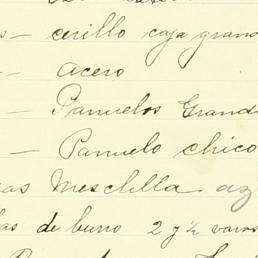 s — cerillo caja grand
— acero
— Panuelos Grand
— Panuelo chico
as Mesclilla az
as de burro 2 y ½ varas